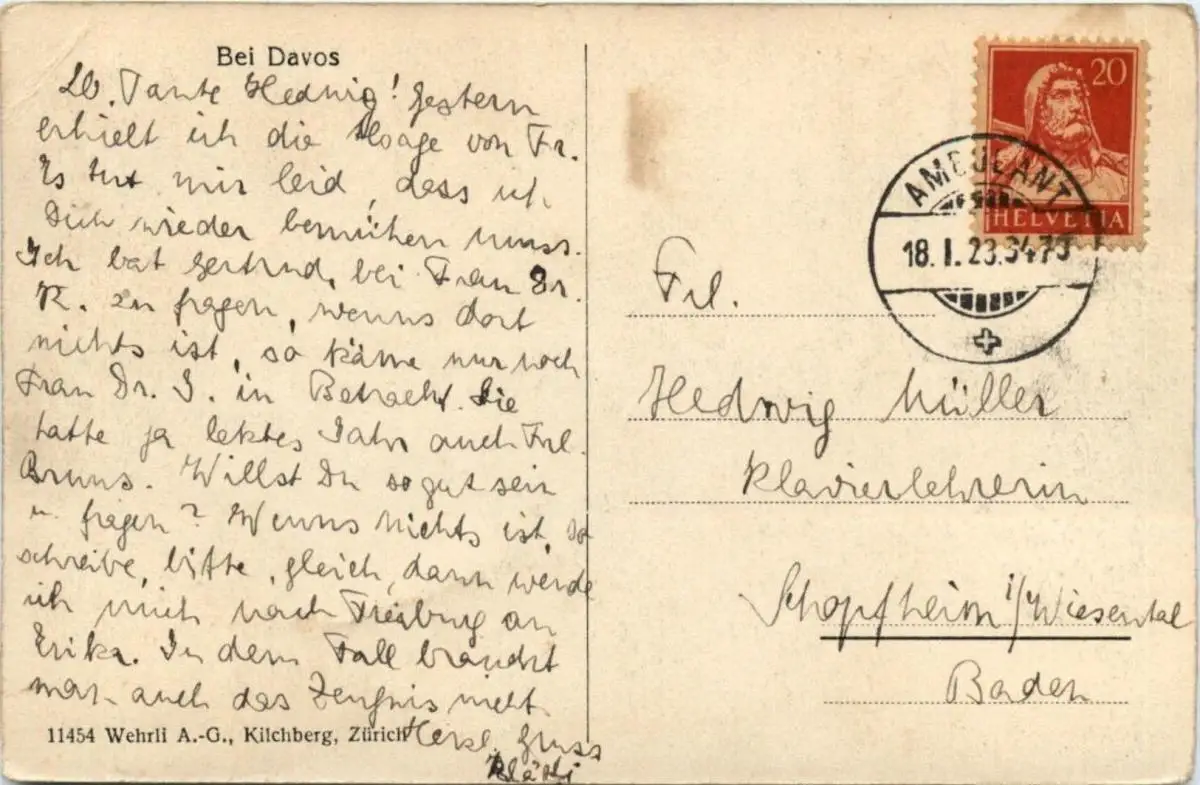 Bei Davos
Lb. Tante Hedwig! Gestern
erhielt ich die Absage von Fr.
Es tut mir leid, dass ich
Dich wieder bemühen muss.
Ich bat Gertrud, bei Frau Dr.
K. zu fragen, wenns dort
nichts ist, so käme nur noch
Frau Dr. J. in Betracht. Sie
hatte ja letztes Jahr auch Frl.
Bruns. Willst Du so gut sein
u. fragen? Wenns nichts ist, so
schreibe, bitte, gleich, dann werde
ich mich nach Freiburg an
Erika. In dem Fall braucht
man auch das Zeugnis nicht.
Herzl. Gruss
Kläthi
11454 Wehrli A.-G., Kilchberg, Zürich
20
HELVETIA
AMBULANT
18. I. 23.
Frl.
Hedwig Müller
Klavierlehrerin
Schopfheim i/Wiesental
Baden